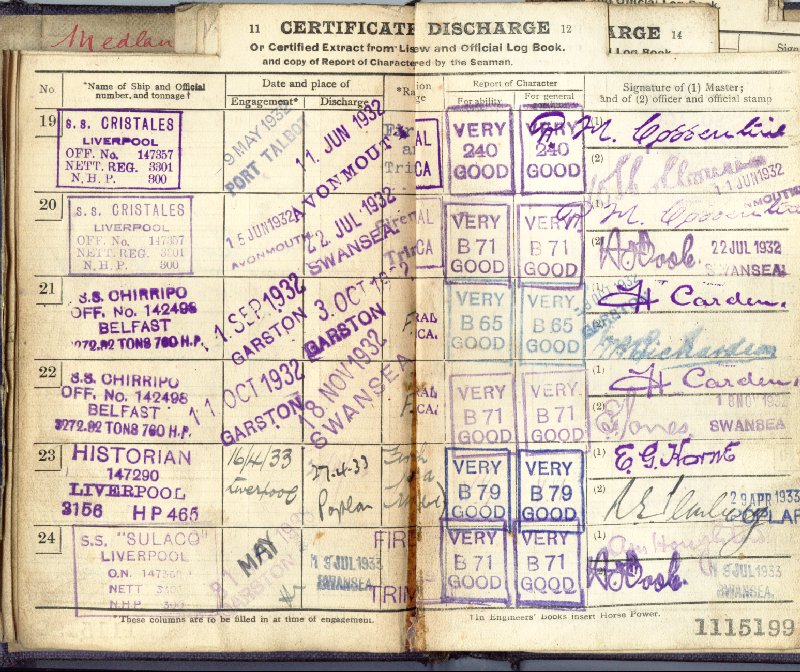 Medlan
11 CERTIFICATE DISCHARGE 12
ARGE 14
Or Certified Extract from Lisew and Official Log Book.
l Log Book.
and copy of Report of Charactered by the Seaman.
No.
*Name of Ship and Official number, and tonnage†
Date and place of
Engagement*
Discharge
*Ra
Report of Character
For ability
For general
Signature of (1) Master;
and of (2) officer and official stamp
19
S.S. CRISTALES
LIVERPOOL
OFF. No. 147357
NETT. REG. 3301
N.H.P. 300
9 MAY 1932
PORT TALBOT
11 JUN 1932
AVONMOUTH
VERY
240
GOOD
VERY
240
GOOD
(1)
(2)
11 JUN 1932
20
S.S. CRISTALES
LIVERPOOL
OFF. No. 147357
NETT. REG. 3301
N.H.P. 300
15 JUN 1932
AVONMOUTH
22 JUL 1932
SWANSEA
VERY
B 71
GOOD
VERY
B 71
GOOD
(1)
(2)
22 JUL 1932
SWANSEA
21
S.S. CHIRRIPO
OFF. No. 142498
BELFAST
3272.92 TONS 760 H.P.
1 SEP 1932
GARSTON
3 OCT 1932
GARSTON
VERY
B 65
GOOD
VERY
B 65
GOOD
(1) H Carden.
Richardson
22
S.S. CHIRRIPO
OFF. No. 142498
BELFAST
3272.92 TONS 760 H.P.
11 OCT 1932
GARSTON
18 NOV 1932
SWANSEA
VERY
B 71
GOOD
VERY
B 71
GOOD
(1) H Carden.
(2) Jones
18 NOV 1932
SWANSEA
23
HISTORIAN
147290
LIVERPOOL
3156 HP 465
16/4/33
Liverpool
27-4-33
Poplar
VERY
B 79
GOOD
VERY
B 79
GOOD
(1)
E.G. Horne
(2)
29 APR 1933
POPLAR
24
S.S. "SULACO"
LIVERPOOL
O.N.
NETT
N.H.P.
31 MAY
GARSTON
19 JUL 1933
SWANSEA
FIR
TRIM
VERY
B 71
GOOD
VERY
B 71
GOOD
(1)
(2)
JUL 1933
SWANSEA.
*These columns are to be filled in at time of engagement.
†In Engineers' Books insert Horse Power.
1115199